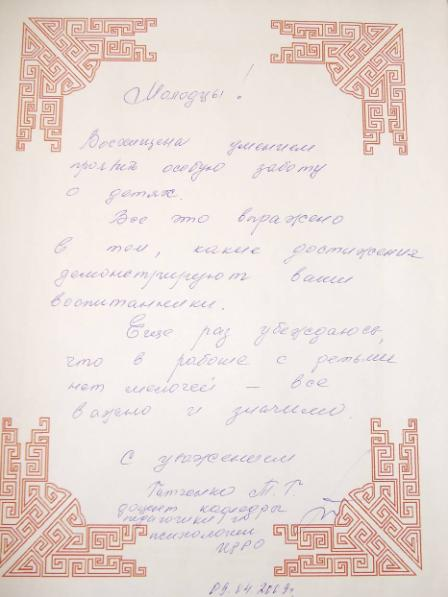 Молодцы!
Восхищена умением
проявить особую заботу
о детях.
Все это выражено
в том, какие достижения
демонстрируют ваши
воспитанники.
Еще раз убеждаюсь,
что в работе с детьми
нет мелочей — все
важно и значимо.
С уважением
Т. Г.
доцент кафедры
педагогики и
психологии
09.04.2009г.